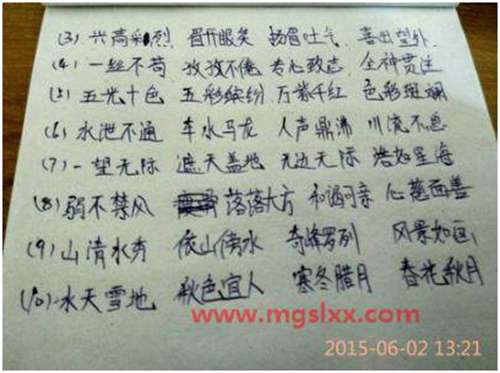 (3) 兴高彩烈 眉开眼笑 扬眉吐气 喜出望外
(4) 一丝不苟 孜孜不倦 专心致志 全神贯注
(5) 五光十色 五彩缤纷 万紫千红 色彩斑斓
(6) 水泄不通 车水马龙 人声鼎沸 川流不息
(7) 一望无际 遮天盖地 无边无际 浩如星海
(8) 弱不禁风 落落大方 和谒可亲 心慈面善
(9) 山清水秀 依山傍水 奇峰罗列 风景如画
(10) 冰天雪地 秋色宜人 寒冬腊月 春花秋月
www.mgslxx.com
2015-06-02 13:21